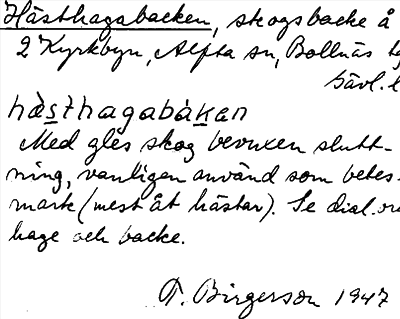 Hästhagabacken, skogsbacke å
2 Kyrkbyn, Alfta sn, Bollnäs
Gävl. l
hàsthagabàkan
Med gles skog bevuxen slutt-
ning, vanligen använd som betes-
mark (mest åt hästar). Se dial.ord
hage och backe.
T. Birgerson 1947